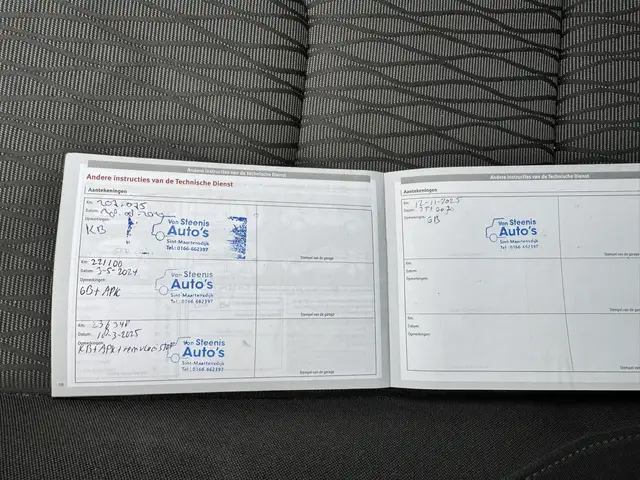 Andere instructies van de Technische Dienst
Andere instructies van de Technische Dienst
Aantekeningen
Km:
Datum:
Opmerkingen:
KB
Van Steenis
Auto's
Sint-Maartensdijk
Tel.: 0166-662397
Stempel van de garage
Km: 221100
Datum: 3-5-2024
Opmerkingen:
GB+ APK
Van Steenis
Auto's
Sint-Maartensdijk
Tel.: 0166-662397
Stempel van de garage
Km:
Datum: -3-2025
Opmerkingen:
KB+APK+
Van Steenis
Auto's
Sint-Maartensdijk
Tel.: 0166-662397
Stempel van de garage
Andere instructies van de Technische Dienst
Aantekeningen
Km: 12-11-2025
Datum:
Opmerkingen:
GB
Van Steenis
Auto's
Sint-Maartensdijk
Tel.: 0166-662397
Stempel van
Km:
Datum:
Opmerkingen:
Stempel van
Km:
Datum:
Opmerkingen:
Stempel van